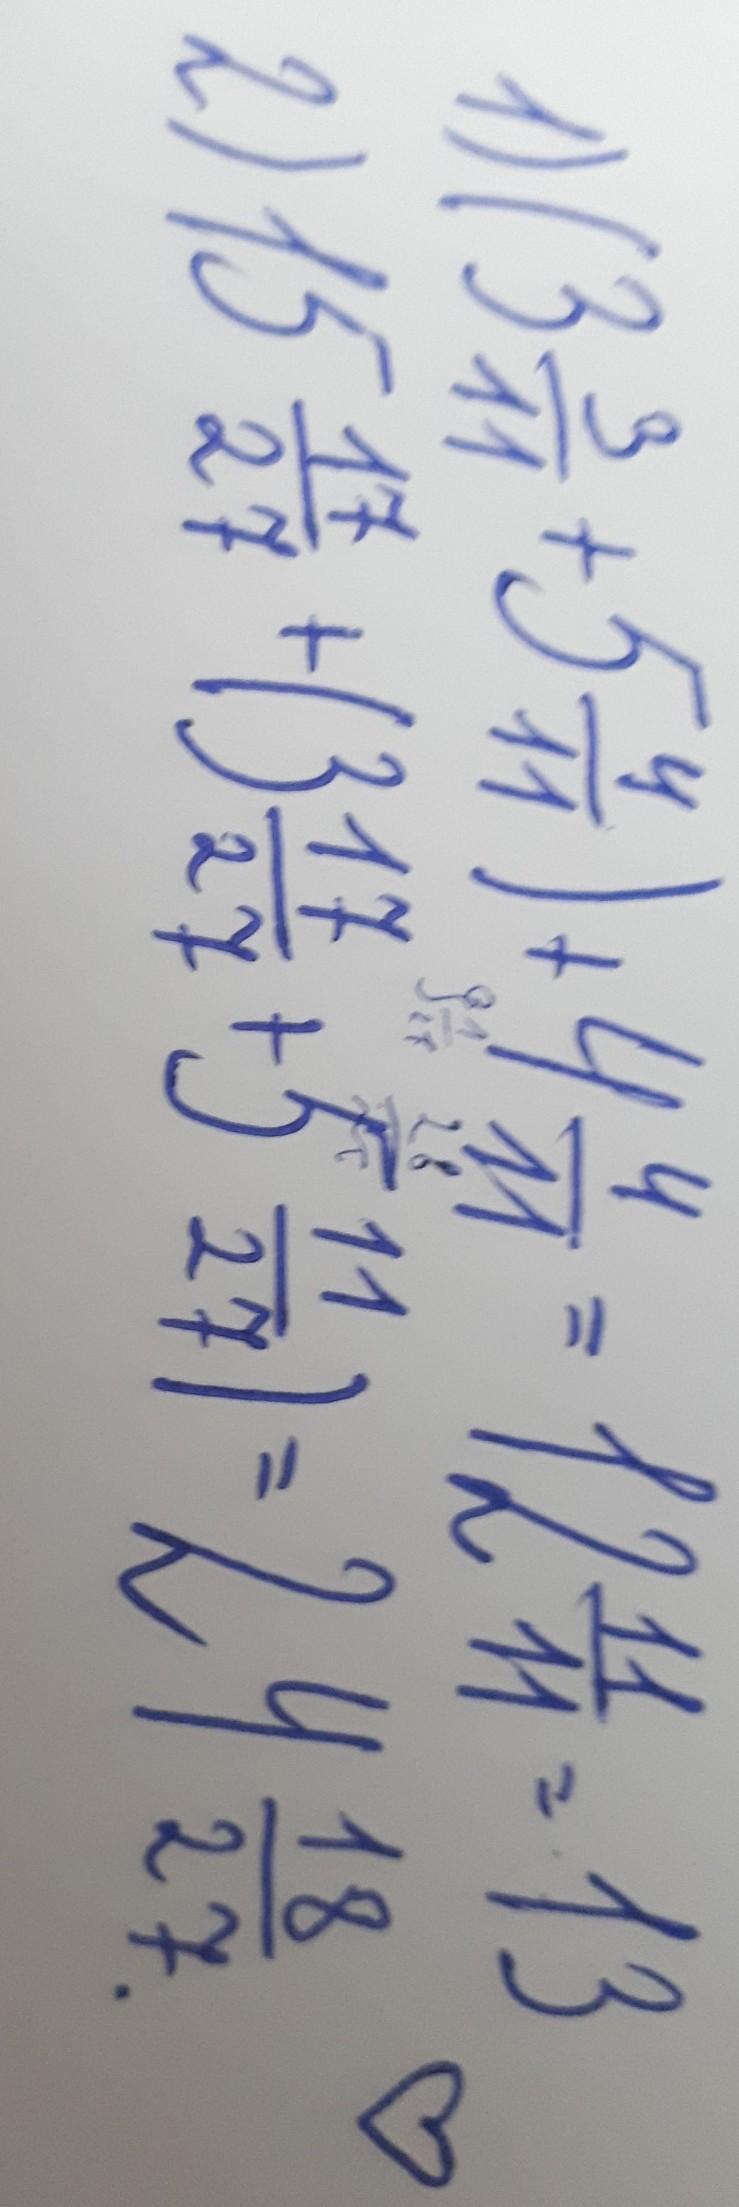 1) (3 3/11 + 5 4/11) + 4 4/11 = 12 11/11 = 13
2) 15 17/27 + (3 17/27 + 5 11/27) = 24 18/27.